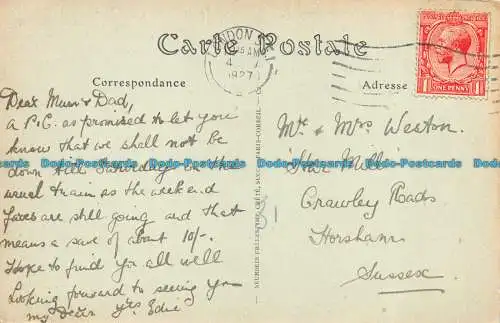 Carte Postale
Correspondance
Adresse
LONDON
4
1927
ONE PENNY
Dear Mum & Dad,
a P.C. as promised to let you
know that we shall not be
down till Saturday by the
usual train as the weekend
fares are still going and that
means a save of about 10/-.
Hope to find you all well
Looking forward to seeing you
my Dear Yrs Edie
Mr & Mrs Weston.
Star Mill
Crawley Road
Horsham
Sussex.
Dado-Postcards Dado-Postcards Dado-Postcards Dado-Postcards